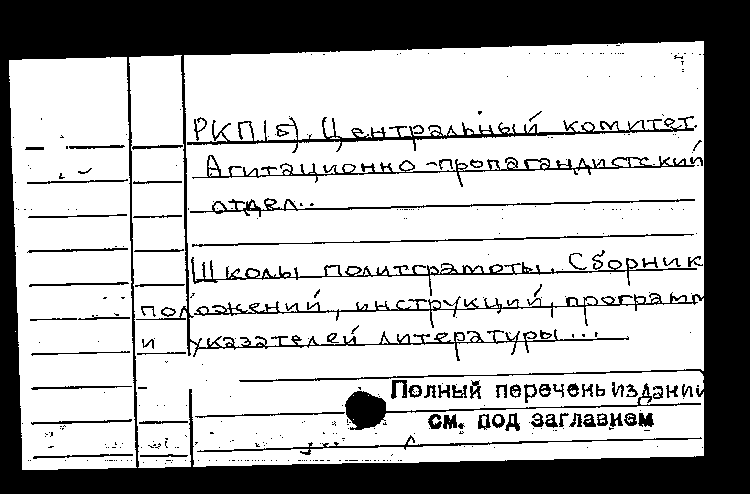 РКП(б). Центральный комитет.
Агитационно-пропагандистский
отдел..
Школы политграмоты. Сборник
положений, инструкций, программ
и указателей литературы...
Полный перечень изданий
см. под заглавием